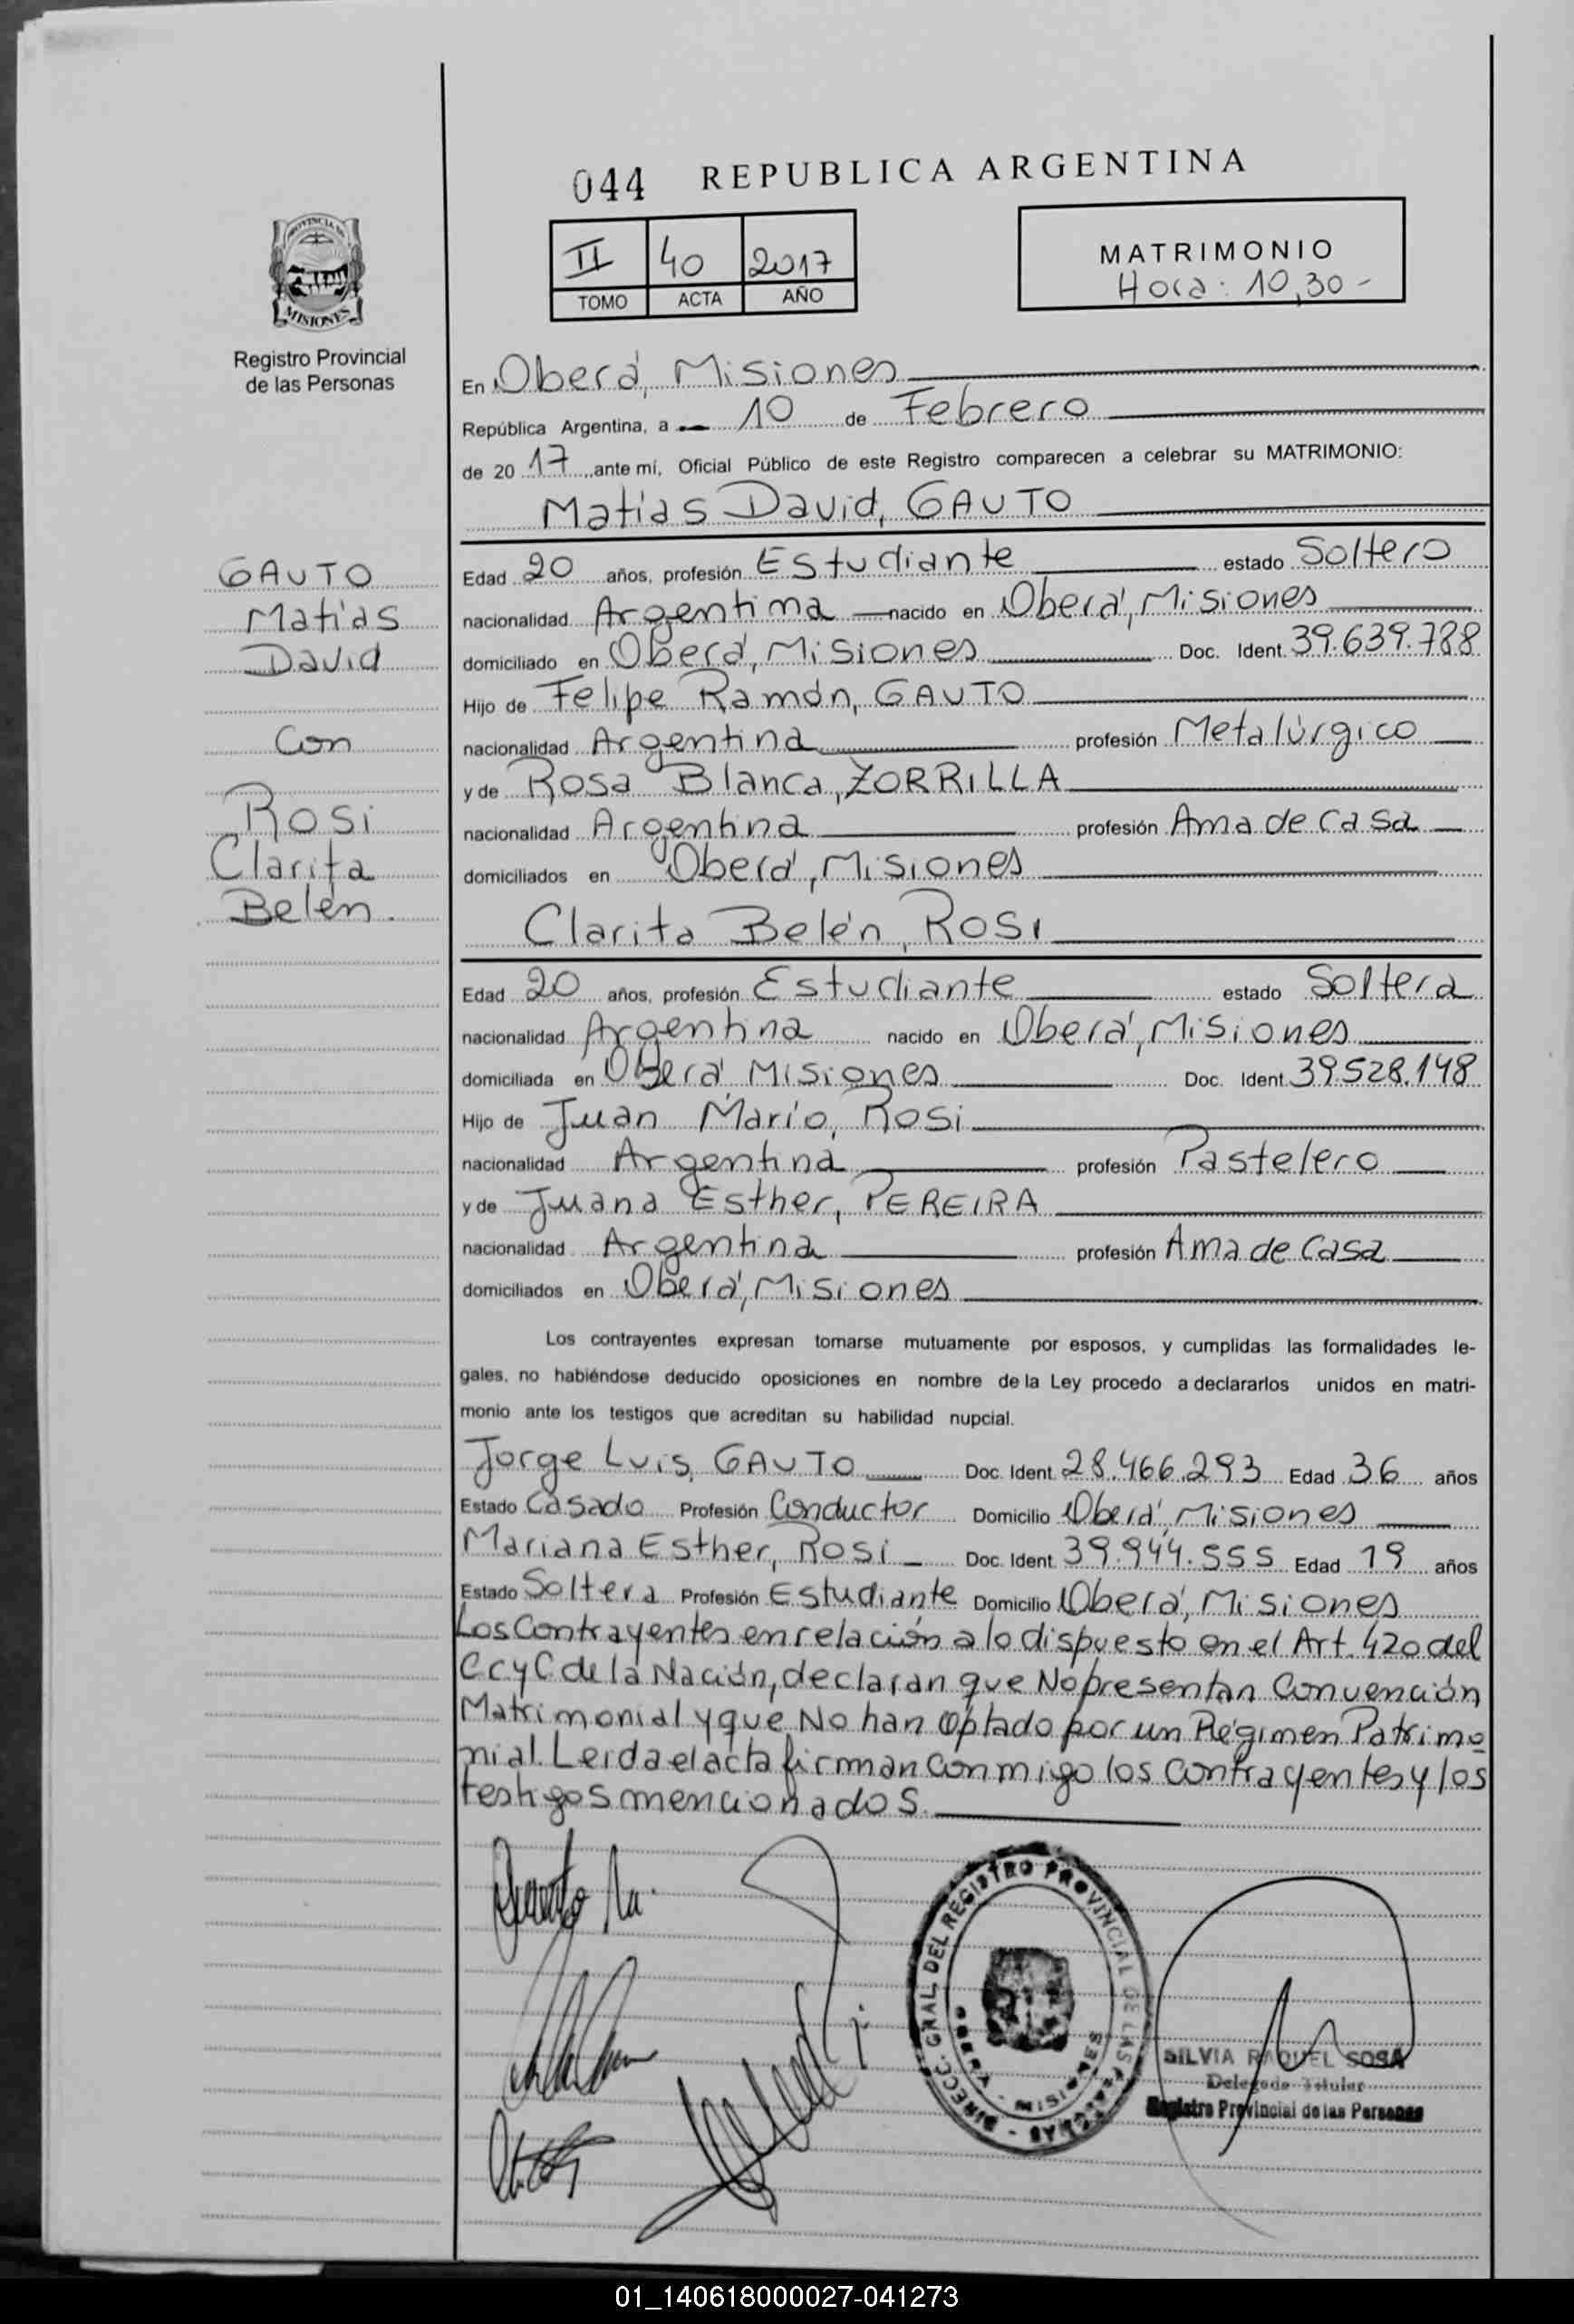 044 REPUBLICA ARGENTINA
PROVINCIA DE
MISIONES
Registro Provincial
de las Personas
II 40 2017
TOMO ACTA AÑO
MATRIMONIO
Hora: 10,30-
En Oberá, Misiones
República Argentina, a 10 de Febrero
de 20 17 ante mí, Oficial Público de este Registro comparecen a celebrar su MATRIMONIO:
Matías David, GAUTO
GAUTO
Matías
David
Con
Rosi
Clarita
Belén.
Edad 20 años, profesión Estudiante estado Soltero
nacionalidad Argentina nacido en Oberá, Misiones
domiciliado en Oberá, Misiones Doc. Ident. 39.639.788
Hijo de Felipe Ramón, GAUTO
nacionalidad Argentina profesión Metalúrgico
y de Rosa Blanca, ZORRILLA
nacionalidad Argentina profesión Ama de Casa
domiciliados en Oberá, Misiones
Clarita Belén, ROSI
Edad 20 años, profesión Estudiante estado Soltera
nacionalidad Argentina nacido en Oberá, Misiones
domiciliada en Oberá, Misiones Doc. Ident. 39.528.148
Hijo de Juan Mario, Rosi
nacionalidad Argentina profesión Pastelero
y de Juana Esther, PEREIRA
nacionalidad Argentina profesión Ama de Casa
domiciliados en Oberá, Misiones
Los contrayentes expresan tomarse mutuamente por esposos, y cumplidas las formalidades le-
gales, no habiéndose deducido oposiciones en nombre de la Ley procedo a declararlos unidos en matri-
monio ante los testigos que acreditan su habilidad nupcial.
Jorge Luis, GAUTO Doc. Ident. 28.466.293 Edad 36 años
Estado Casado Profesión Conductor Domicilio Oberá, Misiones
Mariana Esther, Rosi Doc. Ident. 39.944.555 Edad 19 años
Estado Soltera Profesión Estudiante Domicilio Oberá, Misiones
Los Contrayentes en relación a lo dispuesto en el Art. 420 del
CCyC de la Nación, declaran que No presentan Convención
Matrimonial y que No han optado por un Régimen Patrimo
nial. Leida el acta firman conmigo los contrayentes y los
testigos mencionados.
DIRECC. GRAL. DEL REGISTRO PROVINCIAL DE LAS PERSONAS
OBERA - MISIONES
SILVIA RAQUEL SOSA
Delegada Titular
Registro Provincial de las Personas
01_140618000027-041273